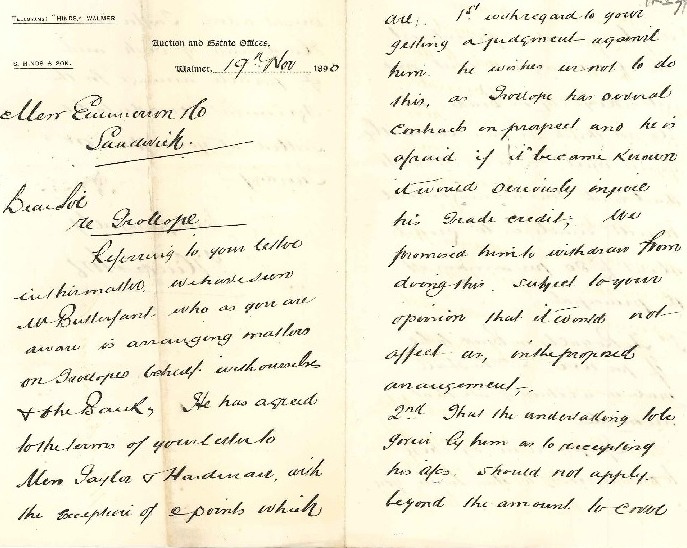 TELEGRAMS: "HINDS," WALMER
S. HINDS & SON.
Auction and Estate Offices,
Walmer, 19th Nov 1890
Messrs Emmerson & Co
Sandwich.
Dear Sir
re Trollope
Referring to your letter
in this matter we have seen
Mr Butterfant who as you are
aware is arranging matters
on Trollopes behalf with ourselves
& the Bank, He has agreed
to the terms of your letter to
Messrs Taylor & Hardman, with
the exception of 2 points which
are; 1st with regard to your
getting a judgment against
him he wishes us not to do
this, as Trollope has several
contracts in prospect and he is
afraid if it became known
it would seriously injure
his Trade credit; We
promised him to withdraw from
doing this subject to your
opinion that it would not
affect us, in the proposed
arrangement,
2nd That the undertaking to be
given by him as to accepting
his should not apply
beyond the amount to cover